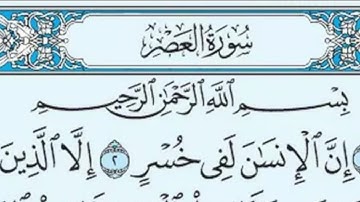 سُورَةُ العَصْرِ
بِسْمِ ٱللَّهِ ٱلرَّحْمَٰنِ ٱلرَّحِيمِ
إِنَّ ٱلْإِنسَٰنَ لَفِى خُسْرٍ ٢ إِلَّا ٱلَّذِينَ